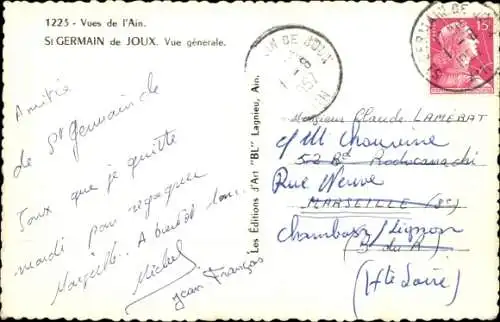 1225 - Vues de l'Ain.
St GERMAIN de JOUX. Vue générale.
Amitié
de St Germain de
Joux que je quitte
mardi pour regagner
Marseille. A bientôt
Michel
Jean François
Les Editions d'Art "BL" Lagnieu, Ain.
15F
Monsieur Claude LAMERAT
c/M Chauvine
52 Bd Rodocanachi
Rue Neuve
MARSEILLE (8e)
Chambon s/Lignon
B. du R.
(Hte Loire)